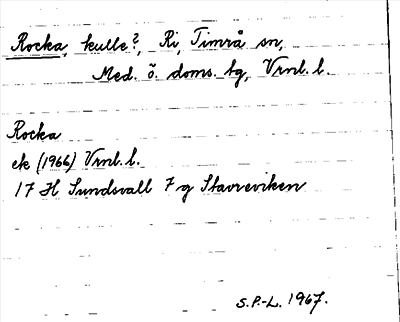 Rocka, kulle?, Ri, Timrå sn,
Med. ö. doms. tg, Vrnl. l.
Rocka
ek (1966) Vrnl. l.
17 H Sundsvall 7 g Stavreviken
S.P.-L. 1967.